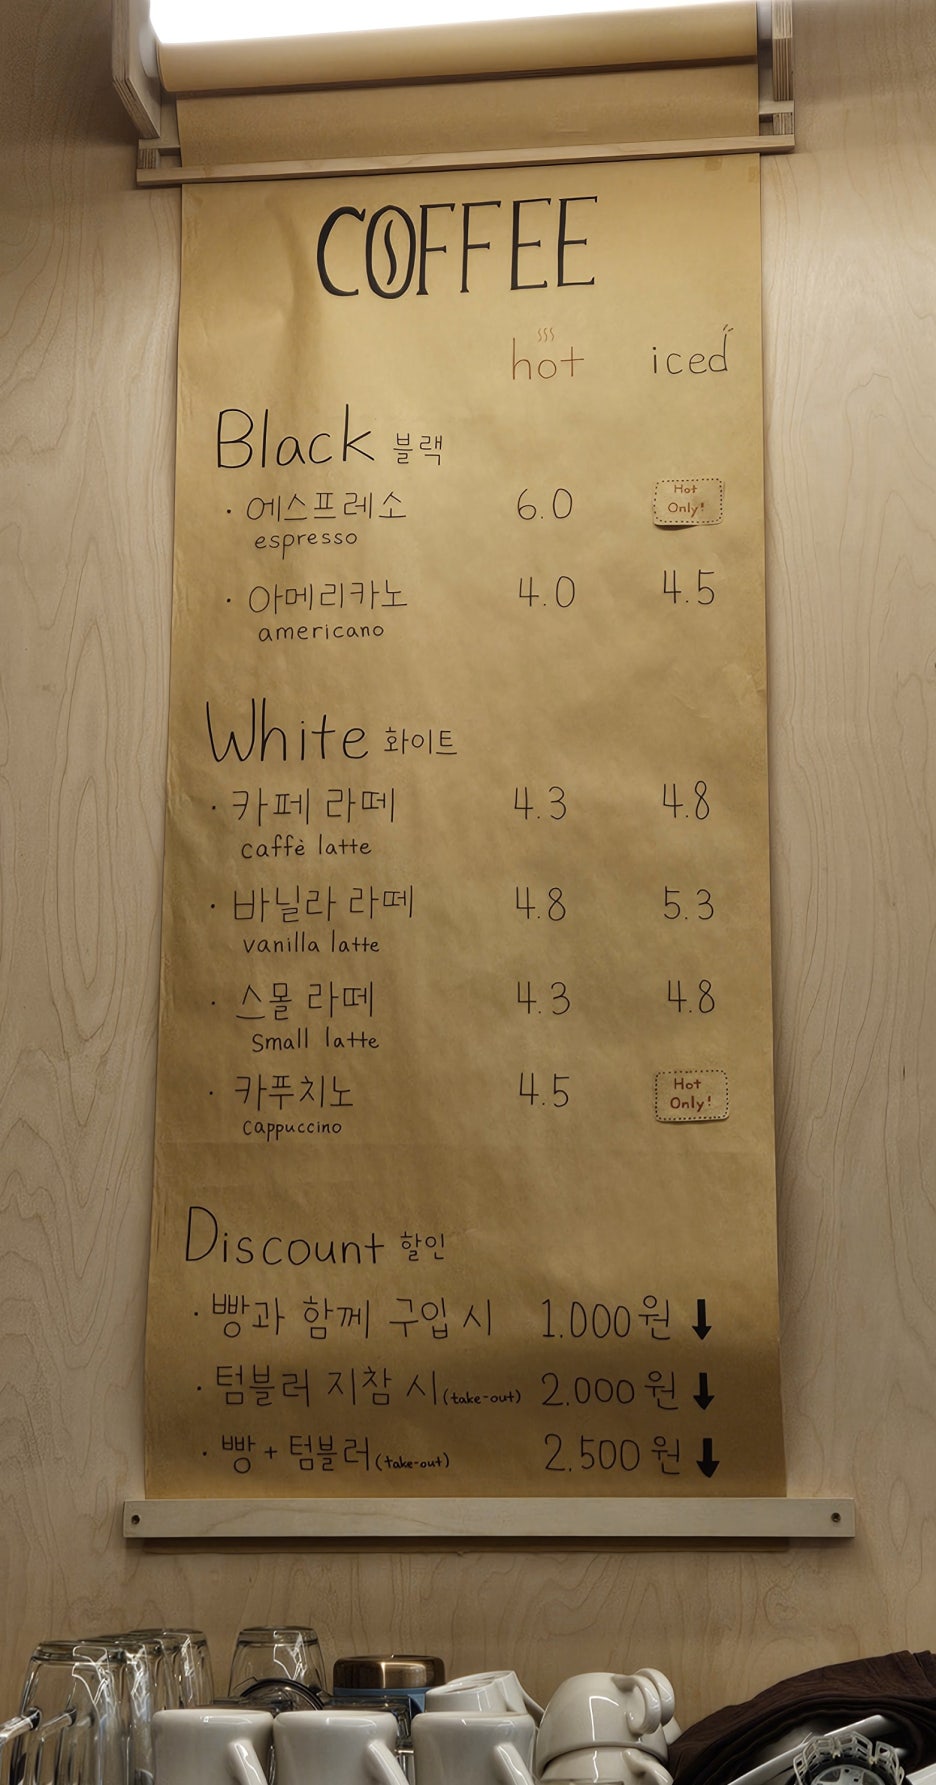 COFFEE
hot iced
Black 블랙
· 에스프레소 6.0 Hot Only!
espresso
· 아메리카노 4.0 4.5
americano
White 화이트
· 카페 라떼 4.3 4.8
caffè latte
· 바닐라 라떼 4.8 5.3
vanilla latte
· 스몰 라떼 4.3 4.8
Small latte
· 카푸치노 4.5 Hot Only!
cappuccino
Discount 할인
· 빵과 함께 구입 시 1.000원 ⬇
· 텀블러 지참 시(take-out) 2.000원 ⬇
· 빵+텀블러(take-out) 2.500원 ⬇